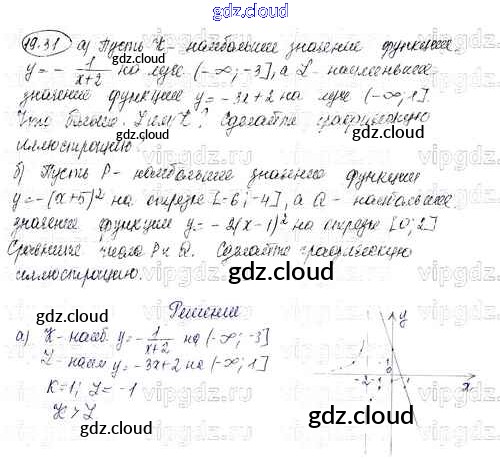 gdz.cloud
19.31 а) Пусть K - наибольшее значение функции
y = - 1/(x+2) на луче (-∞; -3], а L - наименьшее
значение функции y = -3x+2 на луче (-∞; 1].
Что больше: L или K? Сделайте графическую
иллюстрацию.
б) Пусть P - наибольшее значение функции
y = -(x+5)² на отрезке [-6; -4], а Q - наибольшее
значение функции y = -2(x-1)² на отрезке [0; 2]
Сравните числа P и Q. Сделайте графическую
иллюстрацию.
gdz.cloud
Решение
а) K - наиб. y = - 1/(x+2) на (-∞; -3]
L - наим y = -3x+2 на (-∞; 1]
K = 1; L = -1
K > L
y
-2 1
0
x
gdz.cloud
gdz.cloud
gdz.cloud
gdz.cloud
gdz.cloud
vipgdz.ru